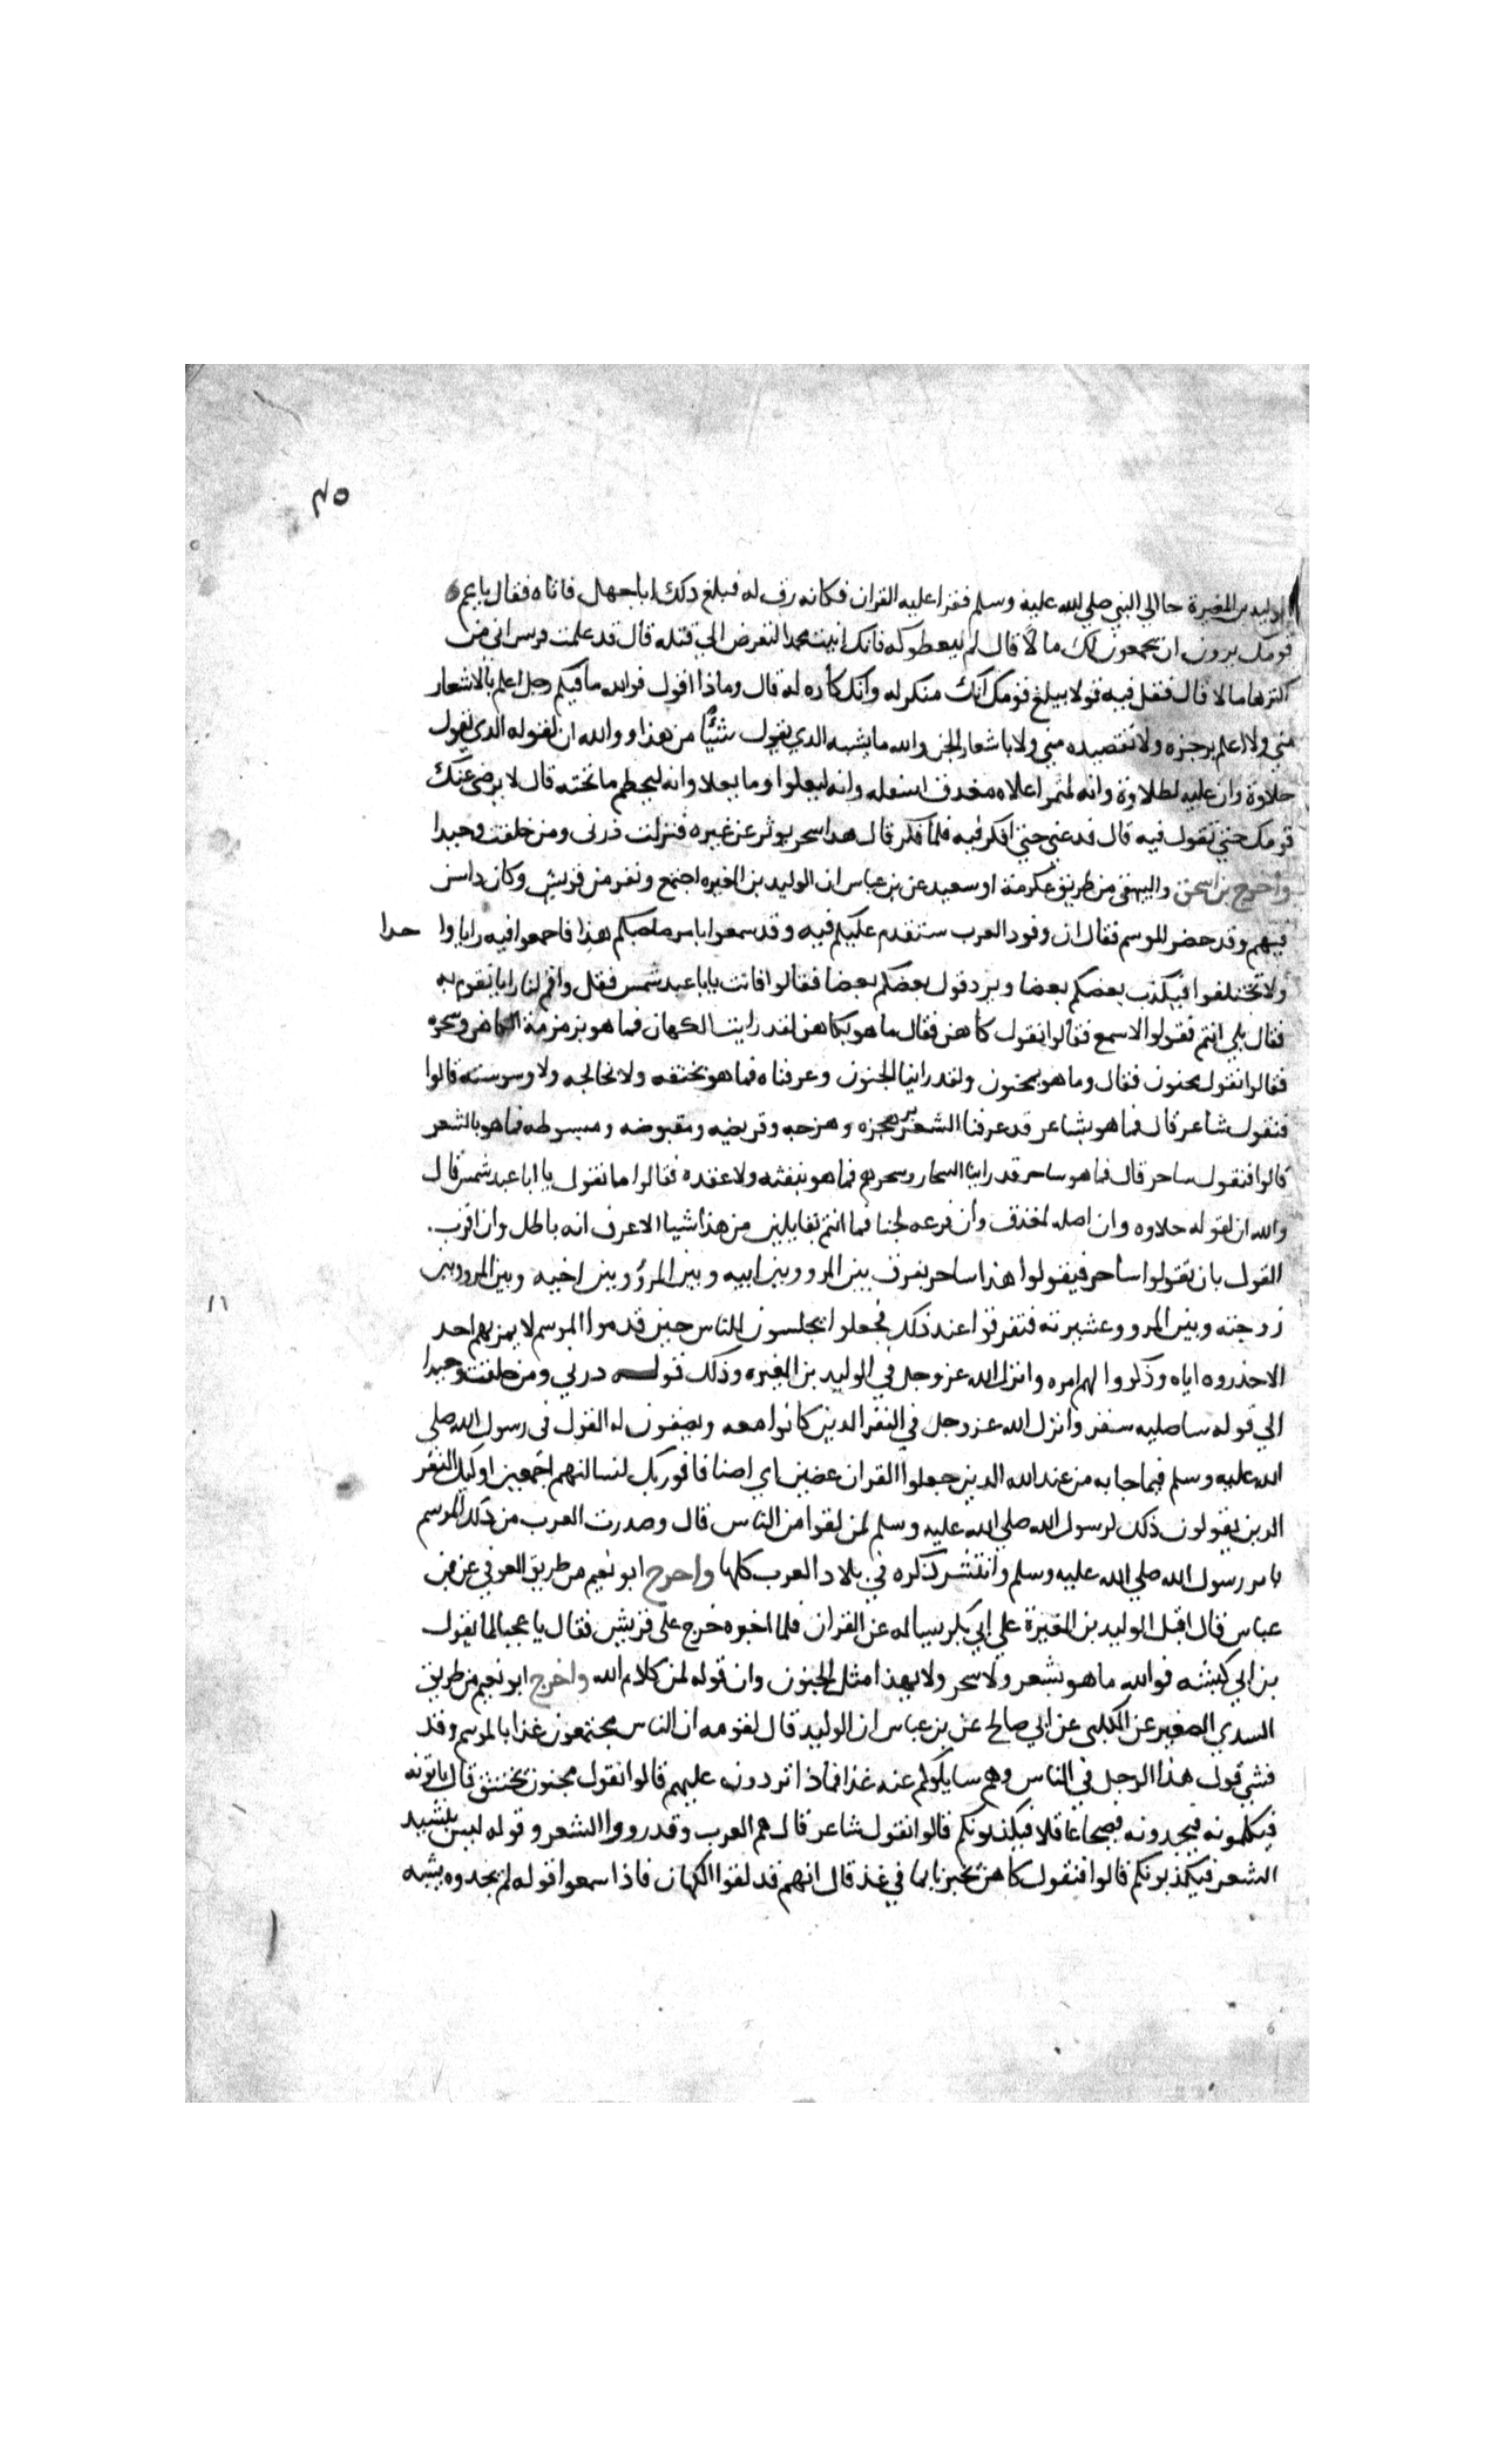 ٤٥
الوليد بن المغيرة جا الي النبي صلي الله عليه وسلم فقرا عليه القران فكانه رق له فبلغ ذلك اباجهل فاتاه فقال ياعم
قومك يرون ان يجمعون لك مالا قال لم ليعطوكه فانك اتيت محمدا لتعرض الي قتله قال قد علمت قريش اني من
اكثرها مالا قال فقل فيه قولا يبلغ قومك انك منكر له وانك كاره له قال وماذا اقول فوالله مافيكم رجل اعلم بالاشعار
مني ولا اعلم برجزه ولا بقصيده مني ولا باشعار الجن والله ما يشبه الذي يقول شئيا من هذا ووالله ان لقوله الذي يقول
حلاوة وان عليه لطلاوة وانه لمثمر اعلاه مغدق اسفله وانه ليعلوا وما يعلا وانه ليحطم ما تحته قال لا يرضي عنك
قومك حتي تقول فيه قال فدعني حتي افكر فيه فلما فكر قال هذا سحر يوثر عن غيره فنزلت ذرني ومن خلقت وحيدا
واخرج بن اسحق والبيهقي من طريق عكرمة او سعيد عن بن عباس ان الوليد بن المغيره اجتمع ونفر من قريش وكان ذا سن
فيهم وقد حضر الموسم فقال ان وفود العرب ستقدم عليكم فيه وقد سمعوا بامر صاحبكم هذا فاجمعوا فيه رايا وا حدا
ولا تختلفوا فيكذب بعضكم بعضا ويرد قول بعضكم بعضا فقالوا فانت يابا عبد شمس فقل واقم لنا رايا نقوم به
فقال بلي انتم فقولوا لاسمع فقالوا نقول كاهن فقال ما هو بكاهن لقد رايت الكهان فما هو بزمزمة الكاهن وسحره
فقالوا نقول مجنون فقال وما هو بمجنون ولقد راينا الجنون وعرفناه فما هو بخنقه ولا تخالجه ولا وسوسته قالوا
فنقول شاعر قال فما هو بشاعر قد عرفنا الشعر برجزه وهزجه وقريضه ومقبوضه ومبسوطه فما هو بالشعر
قالوا فنقول ساحر قال فما هو ساحر قد راينا السحار وسحرهم فما هو بنفثه ولا عقده فقالوا ما نقول يا ابا عبد شمس قال
والله ان لقوله حلاوه وان اصله لمغدق وان فرعه لجنا فما انتم بقايلين من هذا شيا الا عرف انه باطل وان اقرب
القول بان تقولوا ساحر فيقولوا هذا ساحر يفرق بين المرو وبين ابيه وبين المرؤ وبين اخيه وبين المرو وبين
زوجته وبين المرو وعشيرته فتفرقوا عند ذلك فجعلوا يجلسون للناس حين قدموا الموسم لا يمر بهم احد
الا حذروه اياه وذكروا لهم امره وانزل الله عز وجل في الوليد بن المغيره وذلك قوله ذرني ومن خلقت وحيدا
الي قوله ساصليه سقر وانزل الله عز وجل في النفر الذين كانوا معه ويصفون له القول في رسول الله صلي
الله عليه وسلم فيما جا به من عند الله الذين جعلوا القران عضين اي اصنافا فوربك لنسالنهم اجمعين اوليك النفر
الذين يقولون ذلك لرسول الله صلي الله عليه وسلم لمن لقوا من الناس قال وصدرت العرب من ذلك الموسم
بامر رسول الله صلي الله عليه وسلم وانتشر ذكره في بلاد العرب كلها واخرج ابو نعيم من طريق العوفي عن بن
عباس قال اقبل الوليد بن المغيرة علي ابي بكر يساله عن القران فلما اخبره خرج علي قريش فقال يا عجبا لما يقول
بن ابي كبشه فوالله ما هو بشعر ولا سحر ولا بهذا مثل الجنون وان قوله لمن كلام الله واخرج ابو نعيم من طريق
السدي الصغير عن الكلبي عن ابي صالح عن بن عباس ان الوليد قال لقومه ان الناس مجتمعون غذا بالموسم وقد
فشي قول هذا الرجل في الناس وهم سايلوكم عنه غذا فماذا تردون عليهم قالوا نقول مجنون يختنق قال ياتونه
فيكلمونه فيجدونه فصيحا عاقلا فيكذبونكم قالوا نقول شاعر قال هم العرب وقد رووا الشعر وقوله ليس بنشيد
الشعر فيكذبونكم قالوا فنقول كاهن يخبرنا بما في غذ قال انهم قد لقوا الكهان فاذا سمعوا قوله لم يجدوه يشبه